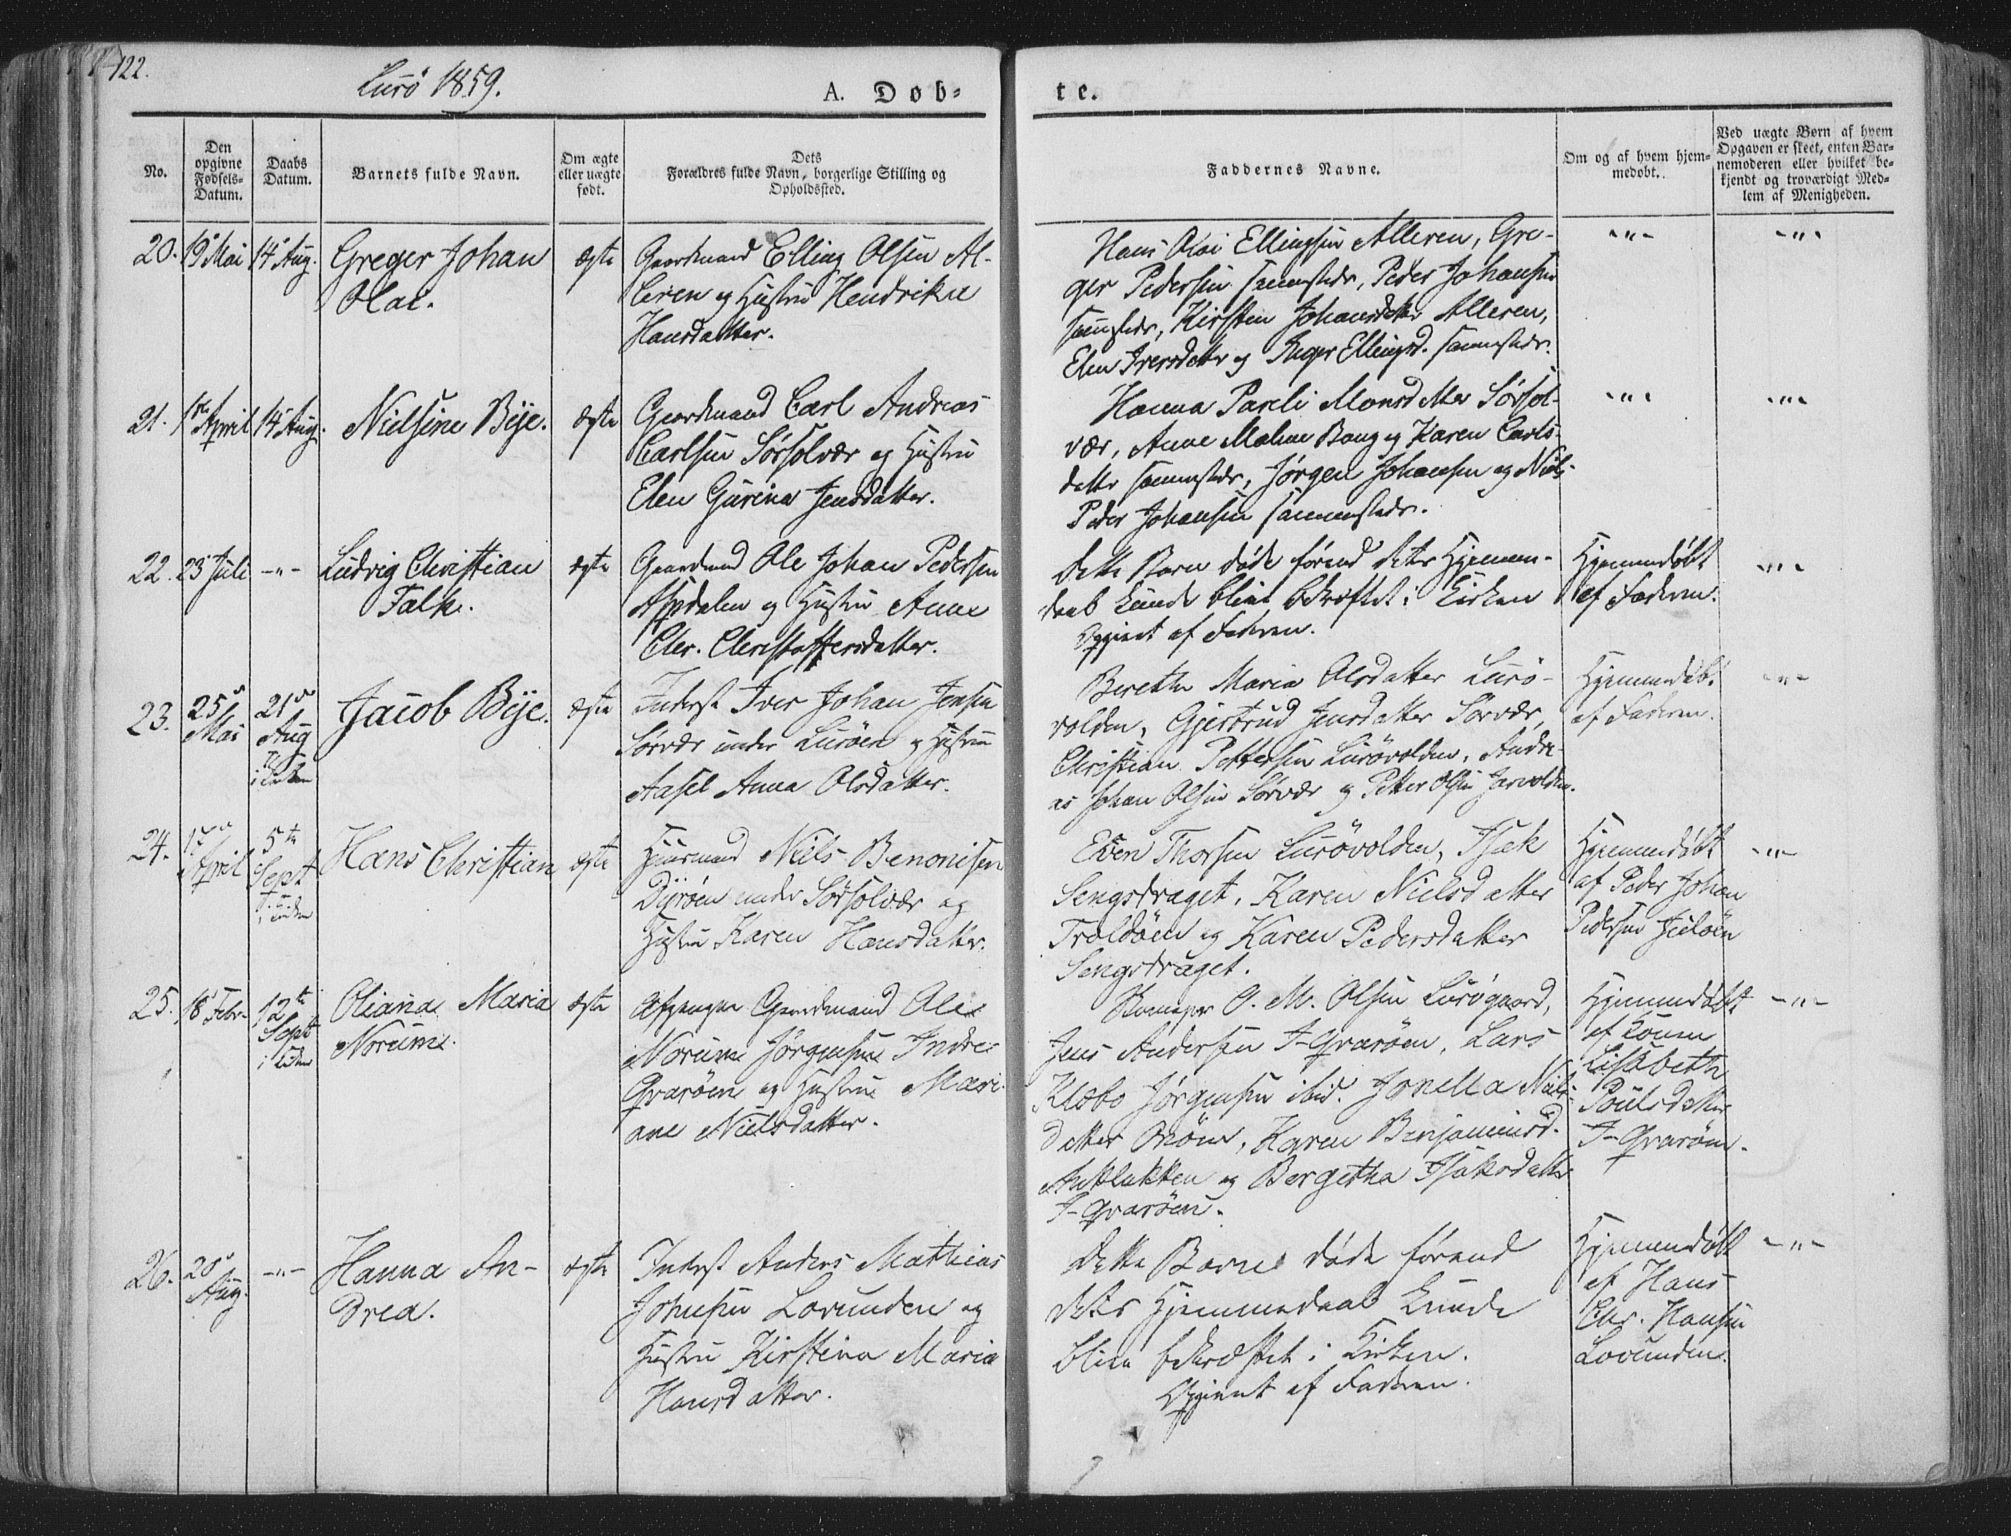 122.
Lurö 1859.
A. Døb=
te.
No.
Den opgivne Fødsels-Datum.
Daabs Datum.
Barnets fulde Navn.
Om ægte eller uægte født.
Dets Forældres fulde Navn, borgerlige Stilling og Opholdssted.
Faddernes Navne.
Om og af hvem hjem=
medøbt.
Ved uægte Børn af hvem
Opgaven er skeet, enten Bar=
nemoderen eller hvilket be=
kjendt og troværdigt Med=
lem af Menigheden.
20. 19 Mai 14 Aug. Greger Johan ægte Gaardmand Elling Olsen Al-
Olai. leren og Hustru Hendrikke
Hansdatter.
Hans Olai Ellingsen Alleren, Gre-
ger Pedersen sammesteds, Peder Johansen
sammesteds, Kirsten Johansdatter Alleren,
Elen Iversdatter og Inger Ellingsd. sammesteds.
-"- -"-
21. 1ste April 14 Aug. Nielsine Bye. ægte Gaardmand Carl Andreas
Carlsen Sørsolvær og Hustru
Elen Gurina Jensdatter.
Hanna Pareli Monsdatter Sørsol-
vær, Anne Malene Bang og Karen Carls-
datter sammesteds, Jørgen Johansen og Niels
Peder Johansen sammesteds.
-"- -"-
22. 23 Juli -"- Ludvig Christian ægte Gaardmand Ole Johan Pedersen
Falk. Aspdalen og Hustru Anne
Chr. Christoffersdatter.
Dette Barn døde førend dets Hjemme-
daab kunde blive bekræftet i Kirken
Opgivet af Faderen.
Hjemmedøbt
af Faderen.
-"-
23. 25 Mai 21 Aug i Kirken Jacob Bye. ægte Inderst Iver Johan Jensen
Sørvær under Luröen og Hustru
Aasel Anna Olsdatter.
Berethe Maria Olsdatter Lurö-
volden, Gjertrud Jensdatter Sörvær,
Christian Pettersen Lurövolden, Andre-
as Johan Olsen Sörvær og Petter Olsen
Hjemmedøbt
af Faderen.
-"-
24. 1 April 5te Sept i Kirken Hans Christian ægte Huusmand Niels Benonisen
Dyröen under Sørsolvær og
Hustru Karen Hansdatter.
Even Thorsen Lurövolden, Isak
Sengsdraget, Karen Nielsdatter
Troldöen og Karen Pedersdatter
Sengsdraget.
Hjemmedøbt
af Peder Johan
Pedersen
-"-
25. 18 Febr. 12te Sept i Kirken Oliana Maria ægte Afgangne Gaardmand Ole
Norum. Norum Jørgensen Indre
Qvarøen og Hustru Mari-
ane Nielsdatter.
O. M. Olsen Lurögaard,
Jens Andersen I-Qvarøen, Lars
Klæbo Jørgensen ibid. Jonetta Niels-
datter Onöen, Karen Benjaminsd.
og Bergetha Isaksdatter
I-Qvarøen.
Hjemmedøbt
af Konen
Lisabeth
Poulsdatter
I-Qvarøen.
-"-
26. 20 Aug. -"- Hanna An- ægte Inderst Anders Mathias
drea. Johnsen Lovunden og
Hustru Kirstina Maria
Hansdatter.
Dette Barn døde førend
dets Hjemmedaab kunde
blive bekræftet i Kirken.
Opgivet af Faderen.
Hjemmedøbt
af Hans
Chr. Hansen
Lovunden.
-"-